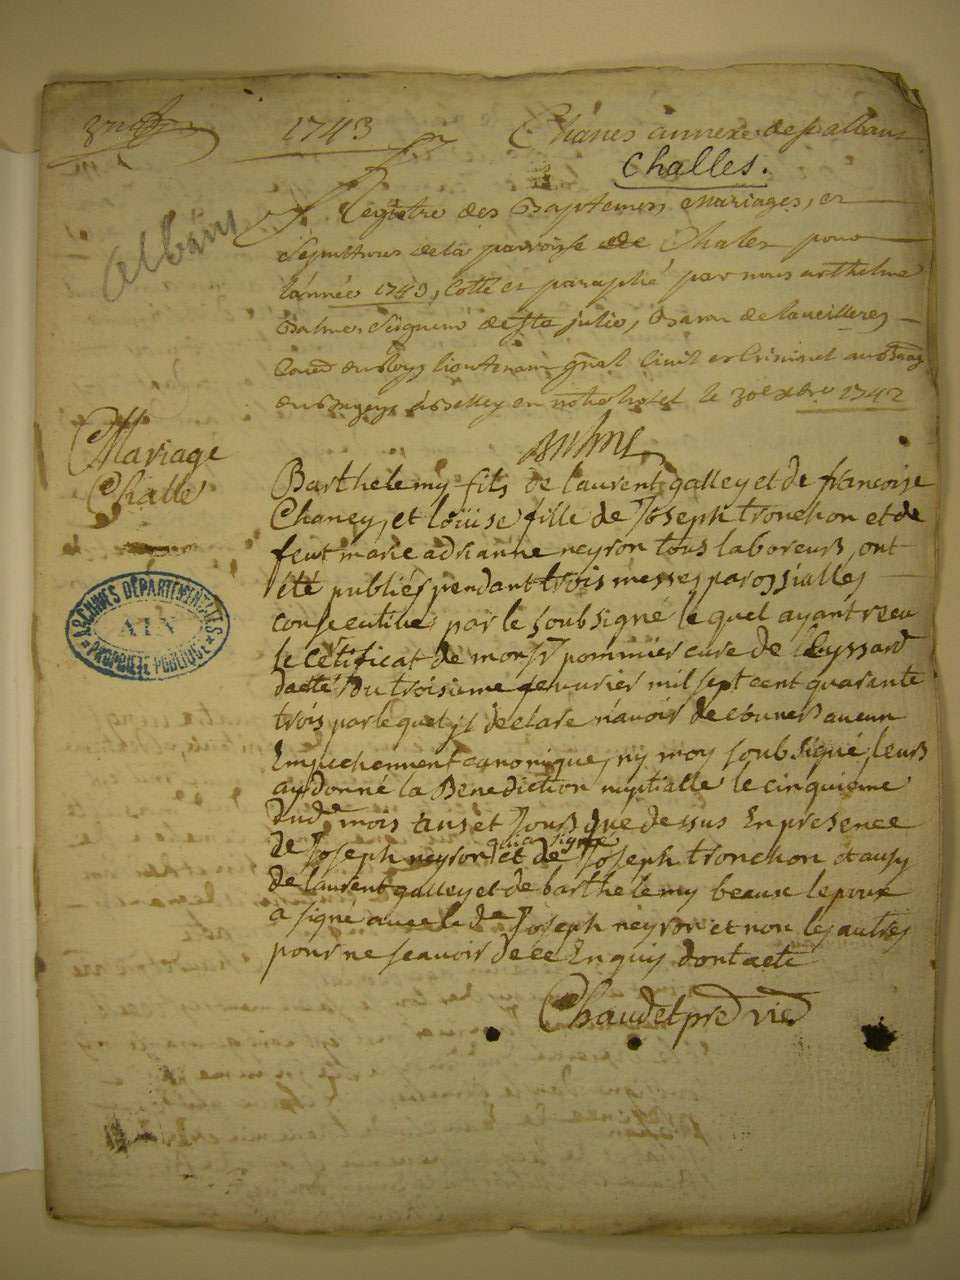 1743
Challes.
Registre des Baptemes Mariages, et
Sepultures de la parroisse de Chales pour
l'année 1743, Cotté et paraphé par nous anthelme
Balme Seigneur de Ste julie, Baron de
lieutenant gnal Civil et Criminel au
en notre hotel le 30e xbre 1742
Mariage
Challe
ARCHIVES DÉPARTEMENTALES
AIN
PROPRIÉTÉ PUBLIQUE
Barthelemy fils de laurent galley et de francoise
Chaney, et loüise fille de Joseph tronchon et de
feut marie adrianne neyron tous laboreurs, ont
été publiés pendant trois messes parossialles
consecutive par le soubsigné le quel ayant receu
le Cetificat de monsr pommier cure de leyssard
datté du troisieme fevurier mil sept cent quarante
trois par le quel jl declare n'avoir decouuers aucun
Empechemment canonique, ny moy soubsigné, leurs
ay donné la Benediction nuptialle le cinquieme
dude mois ans et Jours que dessus En presence
de Joseph neyron qui a signé et de Joseph tronchon et ausy
de laurent galley et de barthelemy beaux lepoux
a signé auec le de Joseph neyron et non les autres
pour ne scauoir de ce Enquis dont acte
Chaudet pre vic